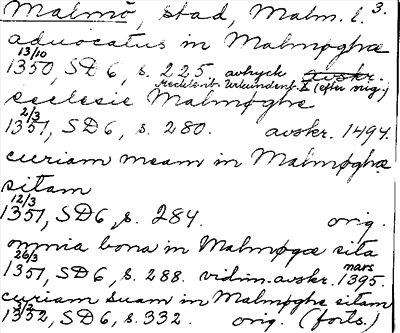 Malmö, stad, Malm. l. 3.
aduocatus in Malmøghæ
13/10
1350, SD 6, s. 225 avtryck avskr.
Mecklenb. Urkundenb. X (efter orig.)
ecclesie Malmøghe
2/3
1351, SD 6, s. 280. avskr. 1494.
curiam meam in Malmøghæ
sitam
12/3
1351, SD 6, s. 284. orig.
omnia bona in Malmøgæ sita
26/3
1351, SD 6, s. 288. vidim. avskr. mars 1395.
curiam suam in Malmøghe sitam
1352, SD 6, s. 332. orig. (forts.)